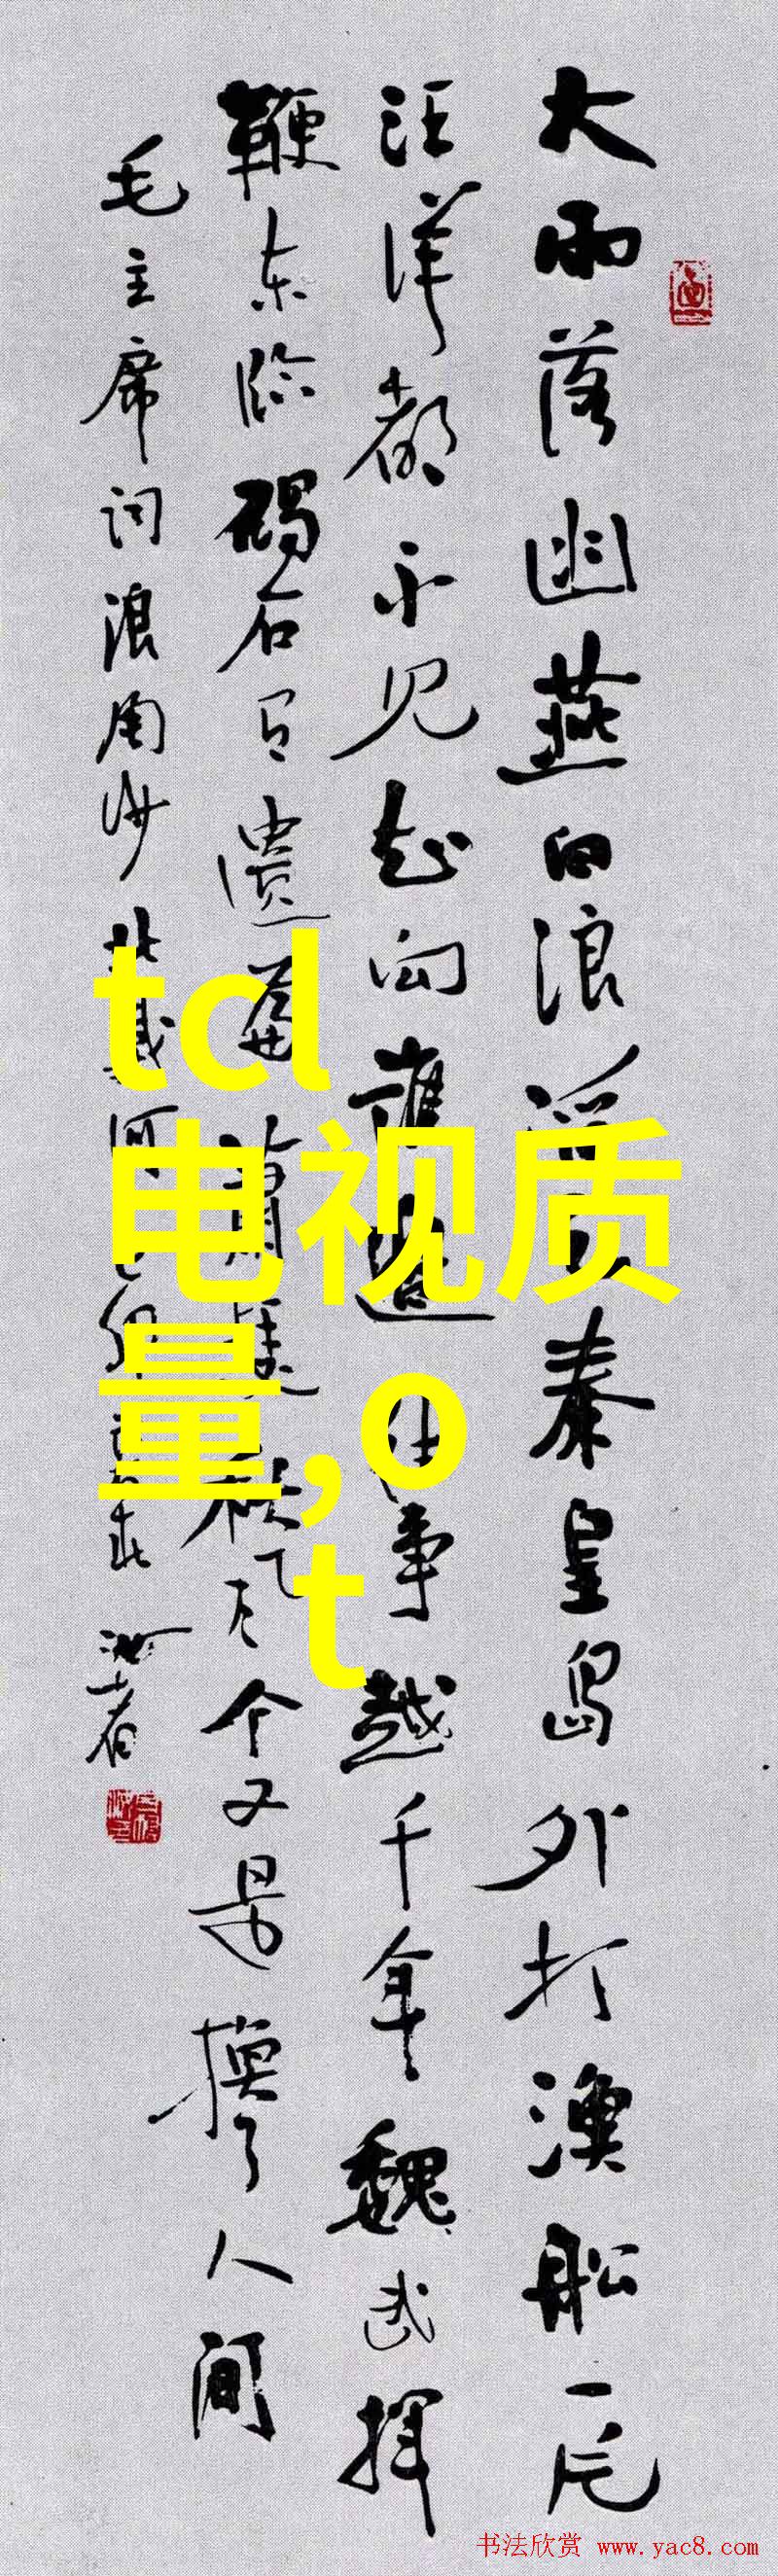 大雨落幽燕白浪滔天秦皇岛外打渔船一片
汪洋都不见知向谁边往事越千年魏武挥
鞭东临碣石有遗篇萧瑟秋风今又是换了人间
毛主席词浪淘沙北戴河
tcl
电视质
量,o
t
书法欣赏 www.yac8.com